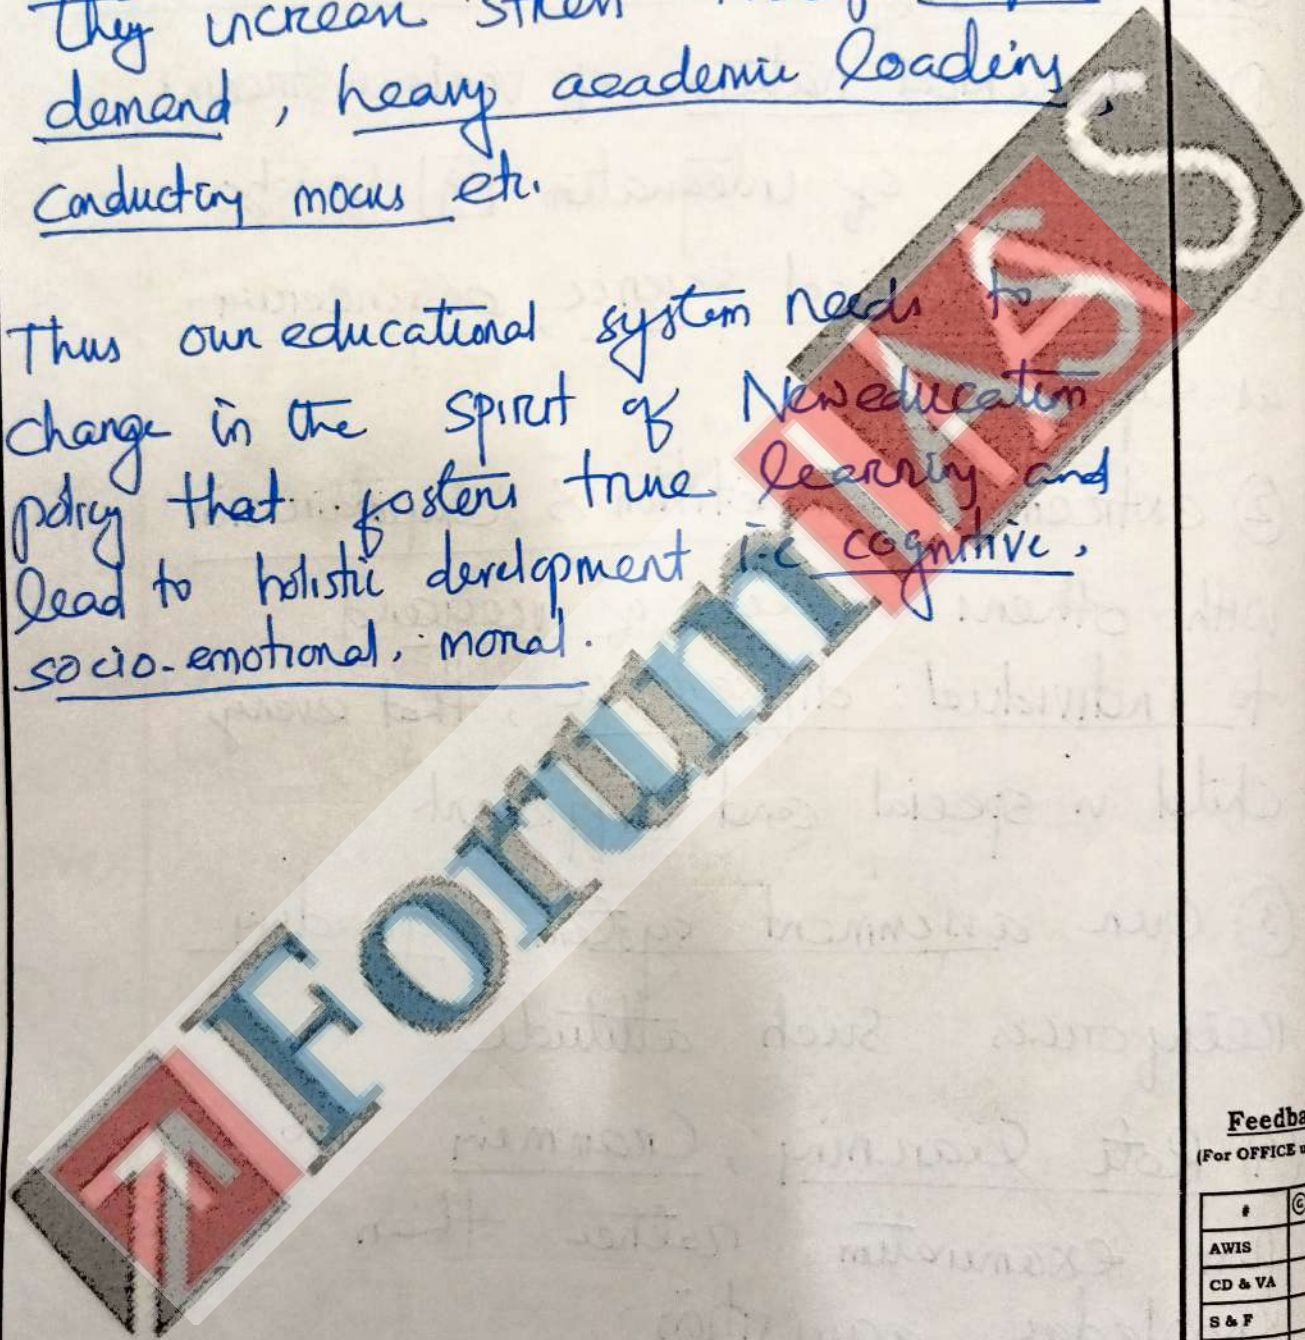 They increase stress
demand, heavy academic loading,
conducting mocks etc.
Thus our educational system needs to
change in the spirit of New education
policy that fosters true learning and
lead to holistic development i.e cognitive,
socio-emotional, moral.
Forum IAS
Feedba
(For OFFICE u
#
AWIS
CD & VA
S & F